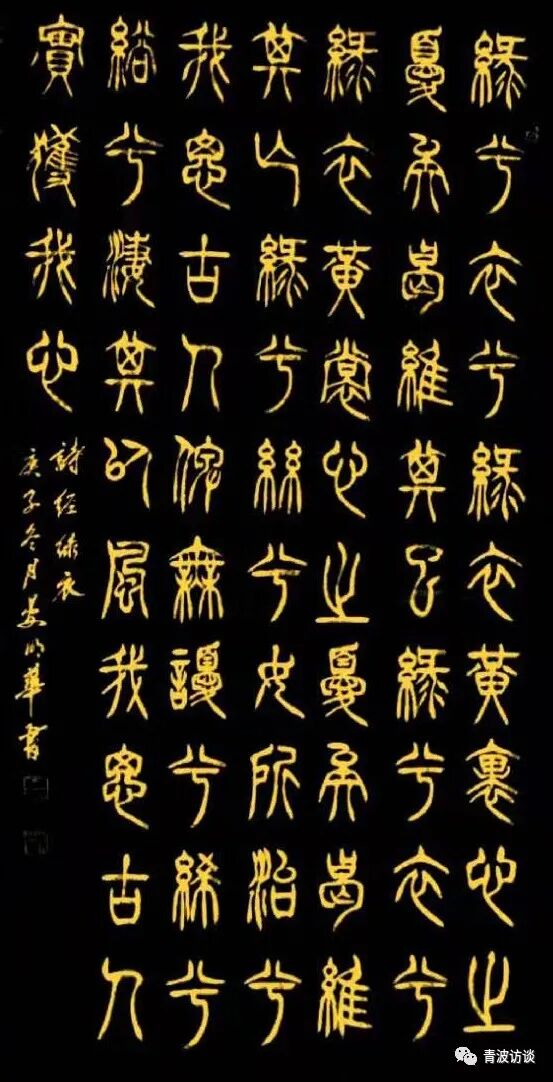 綠兮衣兮綠衣黃裏心之
憂矣曷維其已綠兮衣兮
綠衣黃裳心之憂矣曷維
其亡綠兮絲兮女所治兮
我思古人俾無兮絺兮
綌兮淒其以風我思古人
實獲我心
詩经绿衣
庚子冬月明華書
青波访谈